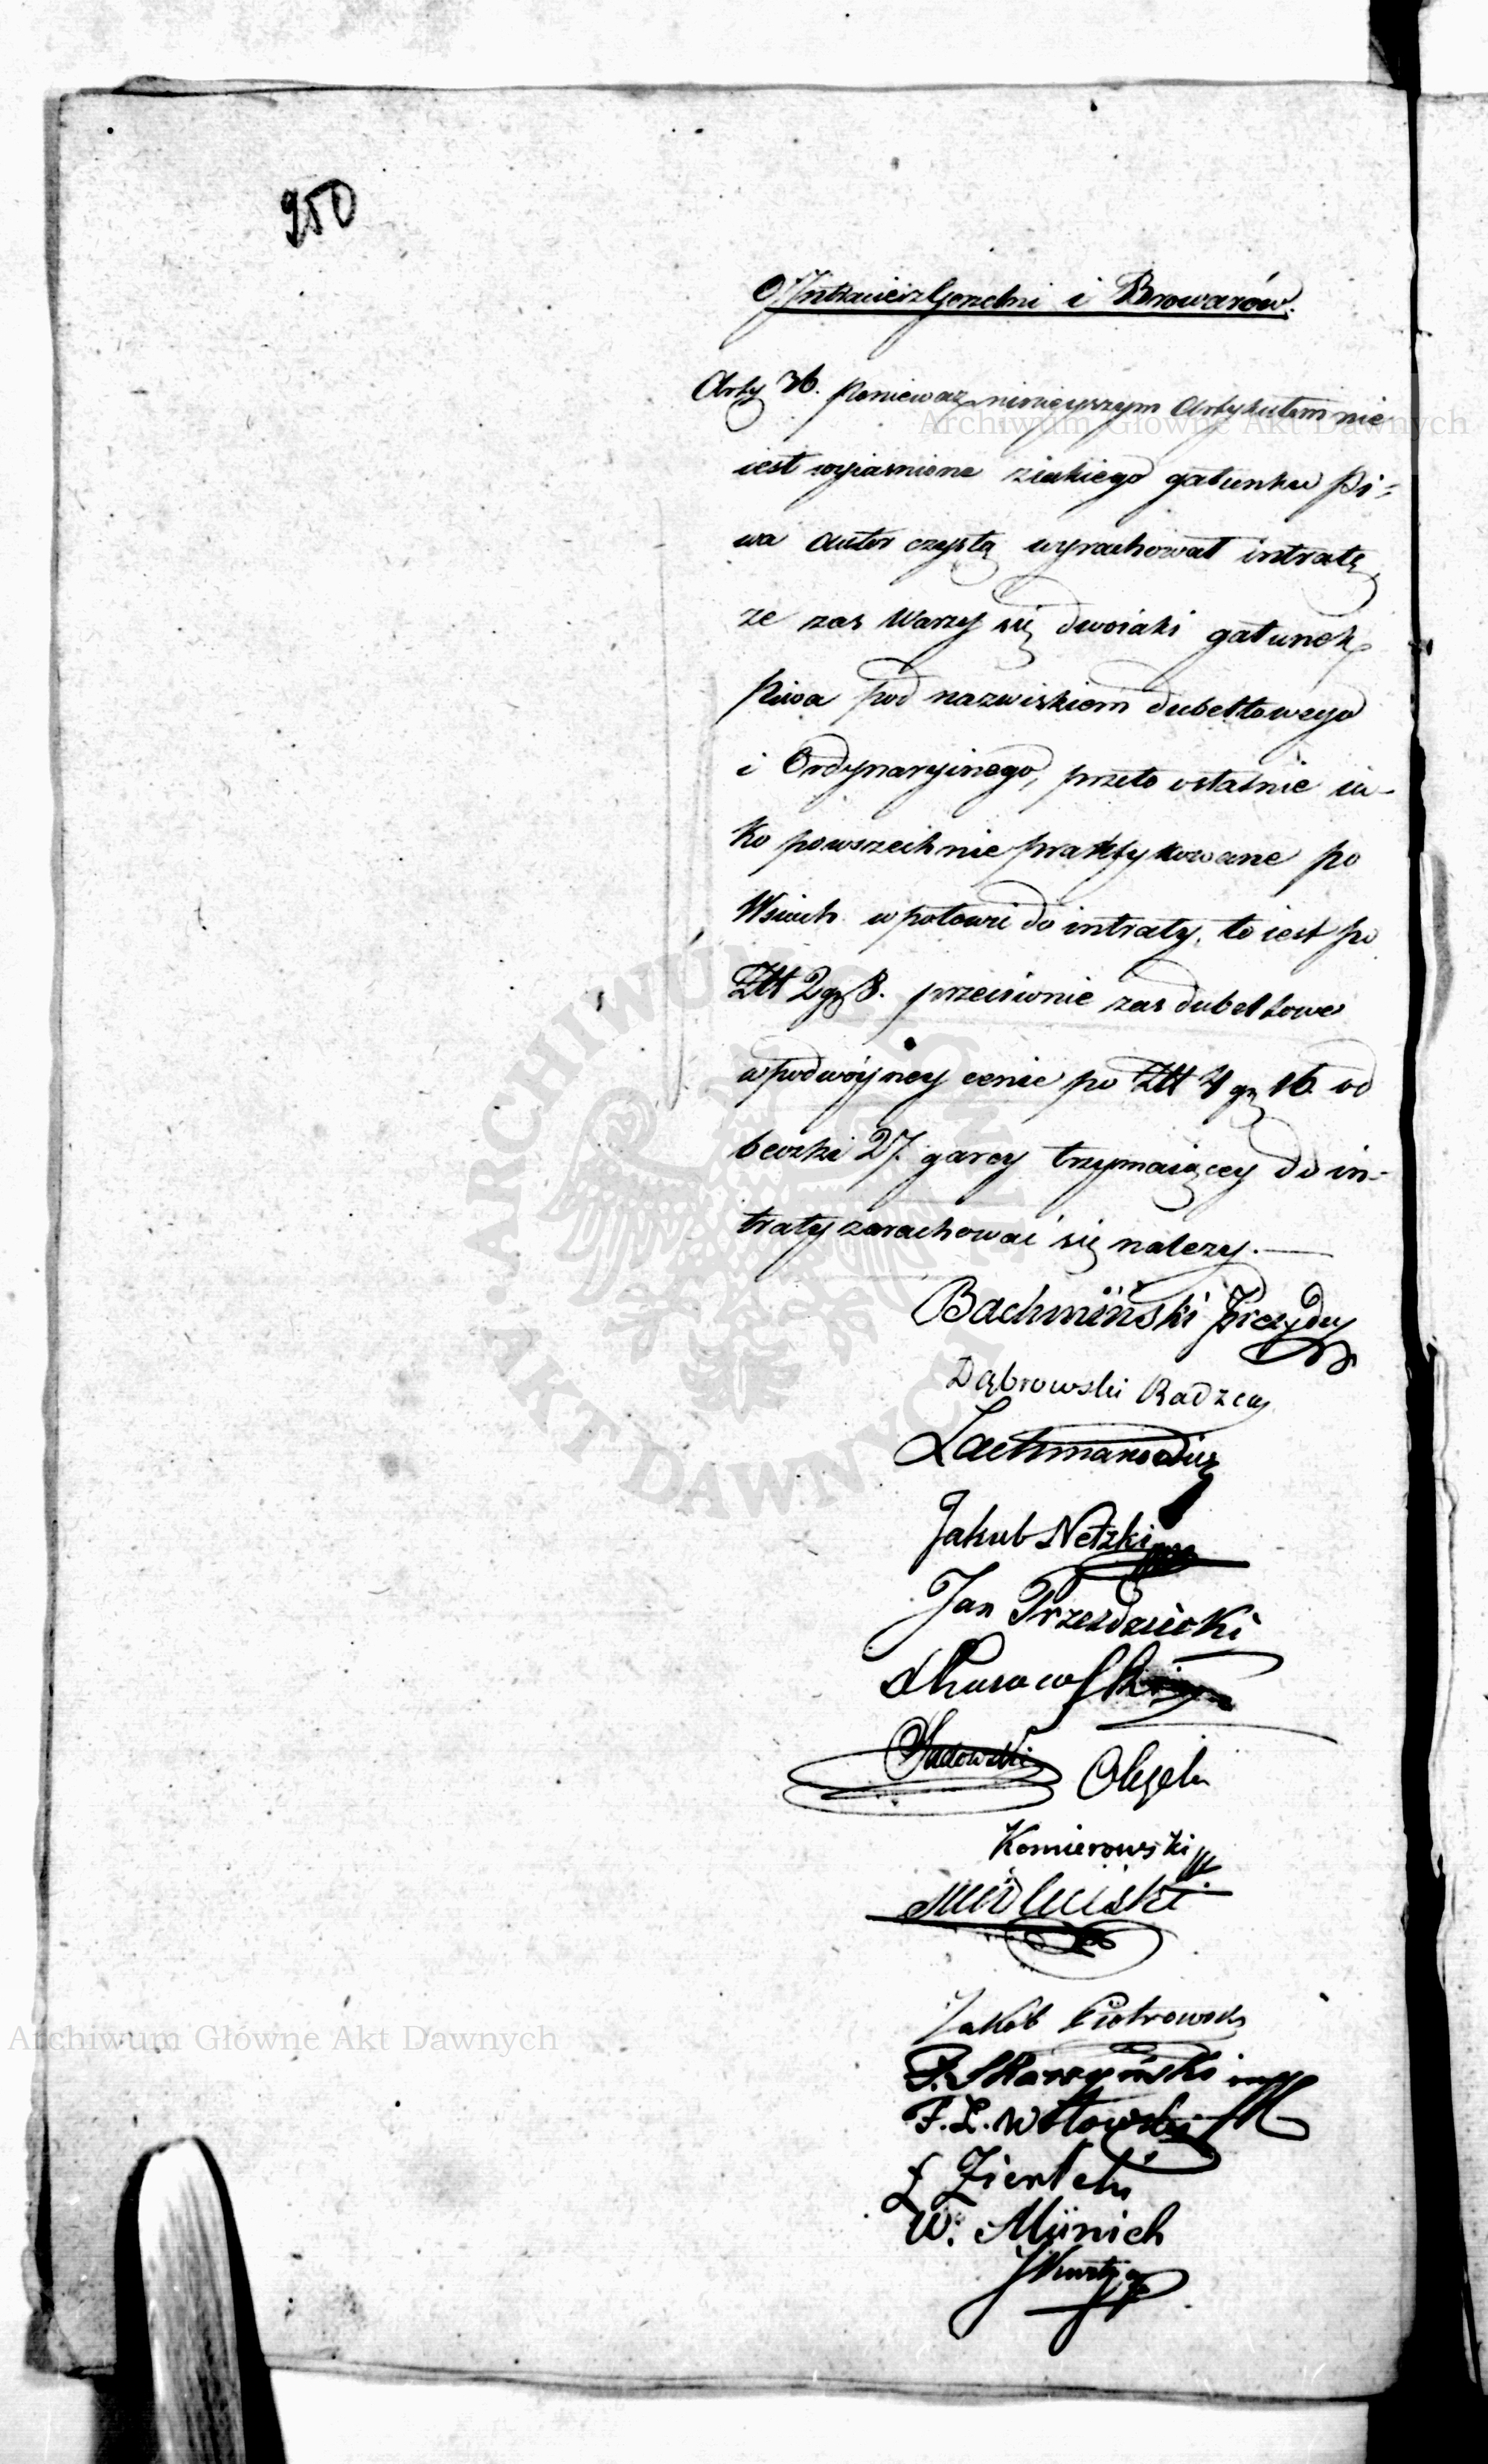 950
O Intracie z Gorzelni i Browarów.
Arty 36. Poniewaz ninieyszym Artykułem nie
iest wyiasnione ziakiego gatunku Pi=
wa Autor czystą wyrachował intratę,
ze zas Warzy się dwoiaki gatunek
Piwa pod nazwiskiem dubeltowego
i Ordynaryinego, przeto ostatnie ia-
ko powszechnie praktykowane po
Wsiach w połowie do intraty. to iest po
Złł 2 gr 8. przeciwnie zas dubeltowe
w podwóyney cenie po Złł 4 gr 16. od
beczki 27. garcy trzymaiącey do in-
traty zarachowac się nalezy.—
Bachmiński Prezyduy
Dąbrowski Radzca
Lachmanowicz
Jakub Netzki
Jan Przezdziecki
Sadowski
Komierowski
Jakób Piotrowski
F. Skarzyński
W. Münich
Archiwum Główne Akt Dawnych
Archiwum Główne Akt Dawnych
ARCHIWUM GŁÓWNE AKT DAWNYCH